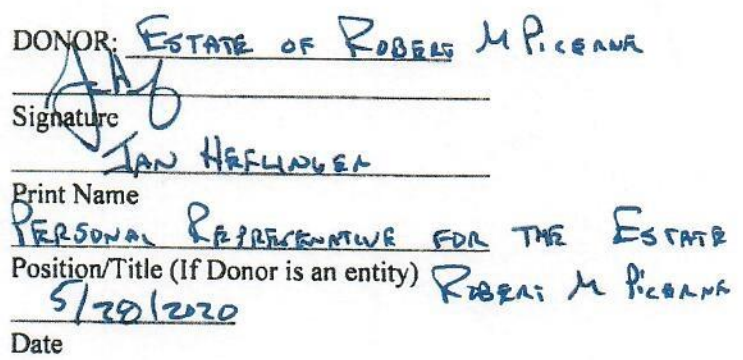 DONOR: ESTATE OF ROBERT M PICERNE
Signature
JAN HEFLINGER
Print Name
PERSONAL REPRESENATIVE FOR THE ESTATE
Position/Title (If Donor is an entity) ROBERT M PICERNE
5/28/2020
Date